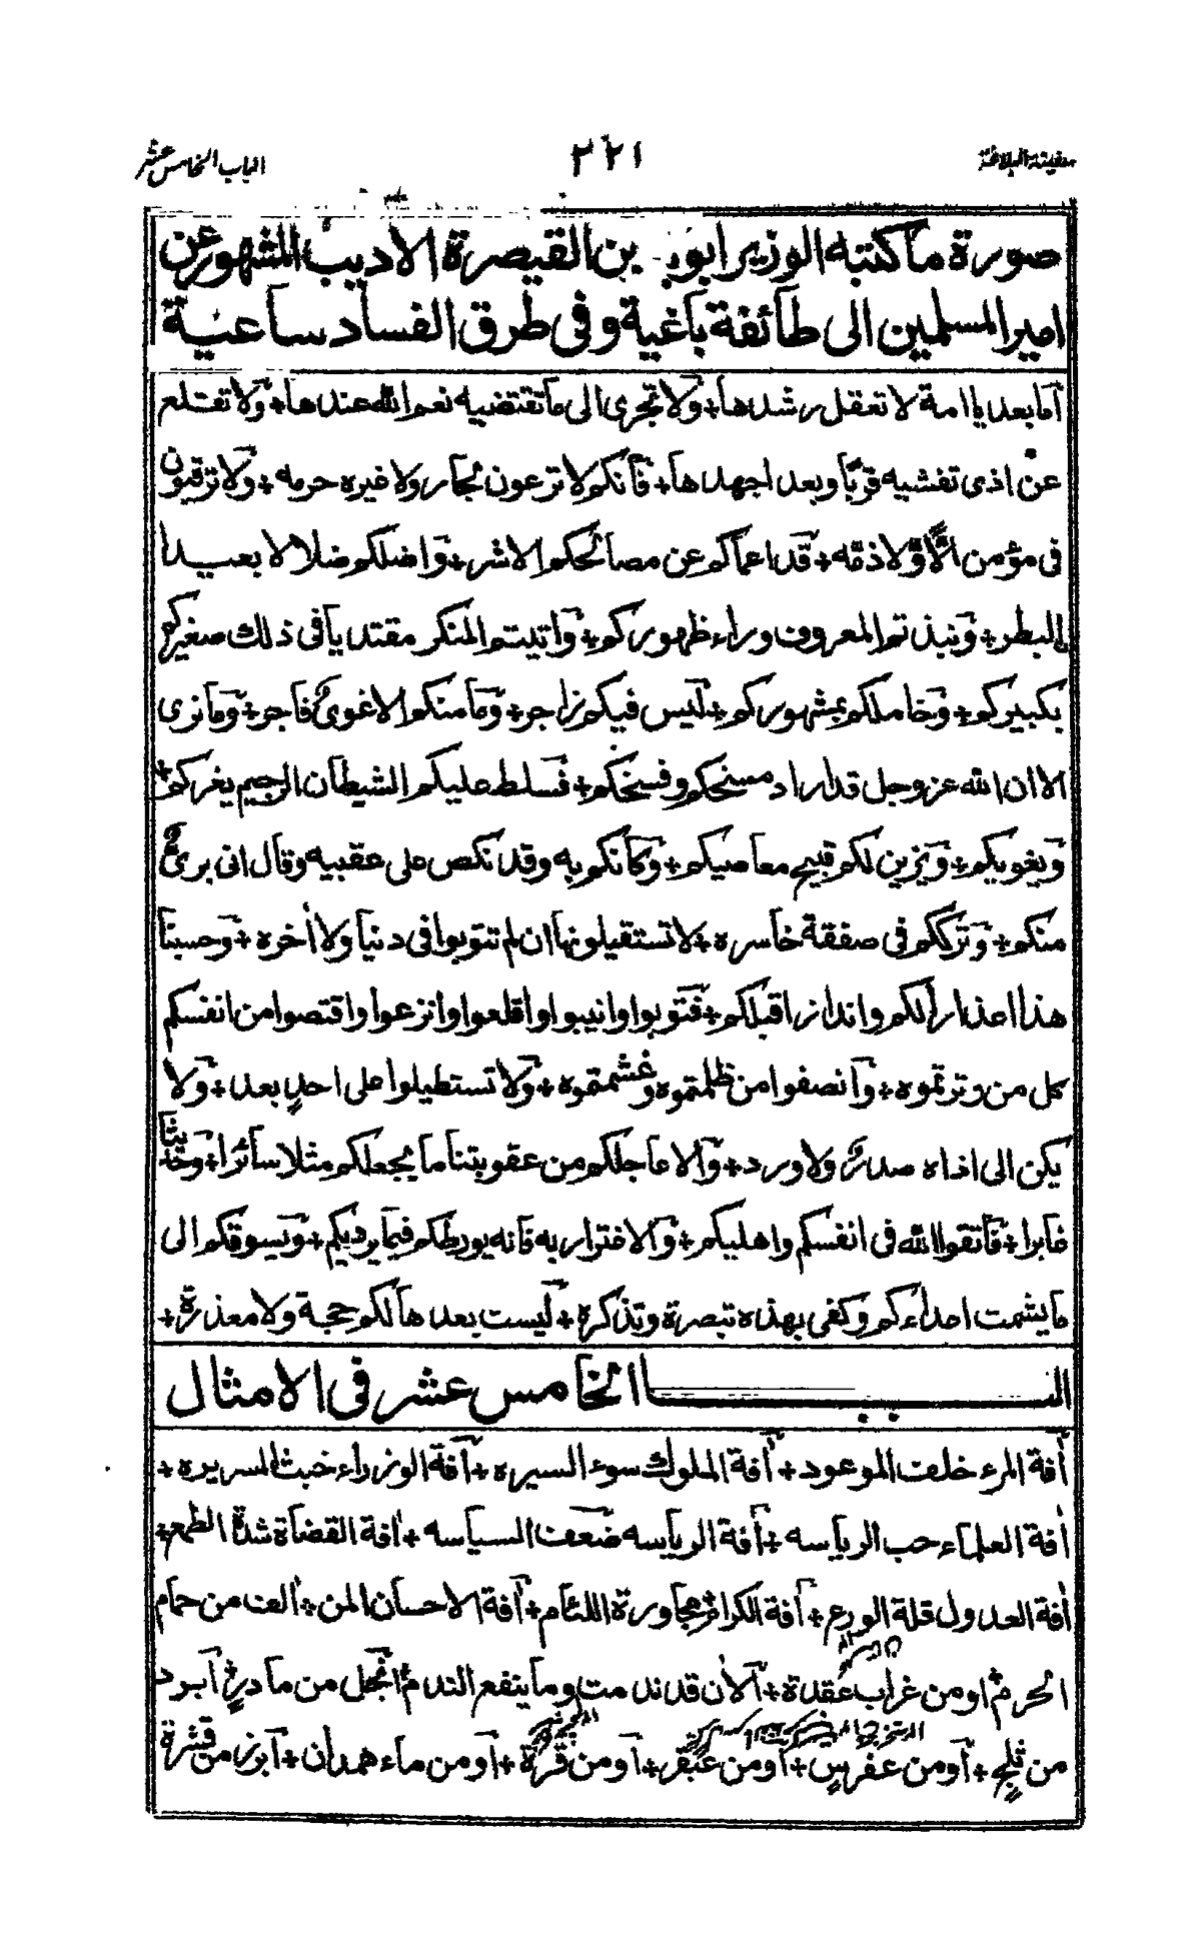 سفينة البلاغة ٢٢١ الباب الخامس عشر
صورة ما كتبه الوزير ابو بن القيصرة الاديب المشهور عن
امير المسلمين الى طآئفة باغية وفى طرق الفساد ساعية
اما بعد يا امة لا تعقل رشدها + ولا تجرى الى ما تقتضيه نعم الله عندها + ولا تقتلع
عن اذى تفشيه قربا وبعدا جهدها + فانكم لا ترعون لجار ولا غيره حرمه + ولا ترقبون
فى مؤمن الّا ولا ذمّه + قد اعماكم عن مصالحكم الاشر + واضلكم ضلالا بعيدا
البطر + ونبذتم المعروف وراء ظهوركم + واتيتم المنكر مقتديا فى ذلك صغيركم
بكبيركم + وخاملكم بمشهوركم + ليس فيكم زاجر + وما منكم الا غوىٌ فاجر + وما نرى
الا ان الله عز وجل قد اراد مسخكم وفسخكم + فسلط عليكم الشيطان الرجيم يغركم +
ويغويكم + ويزين لكم قبيح معاصيكم + وكانكم به وقد نكص على عقبيه وقال انى برئٌ
منكم + وترككم فى صفقة خاسره + لا تستقيلونها ان لم تتوبوا فى دنيا ولا أخره + وحسبنا
هذا اعذارا لكم وانذارا قبلكم + فتوبوا وانيبوا واقلعوا وانزعوا واقتصوا من انفسكم
كل من وترتموه + وانصفوا من ظلمتموه وغشمتموه + ولا تستطيلوا على احدٍ بعد + ولا
يكن الى اذاه صدرٌ ولا ورد + والا عاجلكم من عقوبتنا ما يجعلكم مثلا سائرا + وحديثا
غابرا + فاتقوا الله فى انفسكم واهليكم + والاغترار به فانه يورطكم فيما يرديكم + ويسوقكم الى
ما يشمت اعداءكم وكفى بهذه تبصرة وتذكرة + ليست بعدها لكم حجة ولا معذرة +
الباب الخامس عشر فى الامثال
أفة المرء خلف الموعود + أفة الملوك سوء السيره + أفة الوزراء خبث السريره +
أفة العلماء حب الرياسه + أفة الرياسه ضعف السياسه + أفة القضاة شدة الطمع +
أفة العدول قلة الورع + أفة الكرام مجاورة اللئام + أفة الاحسان المن + الف من حمام
الحرم او من غراب عقدة + الأن قد ندمت وما ينفع الندم ابخل من مادرٍ ابرد
من ثلجٍ + او من عفرسٍ + او من عبقر + او من قرة + او من ماء همدان + ابرز من قشرة